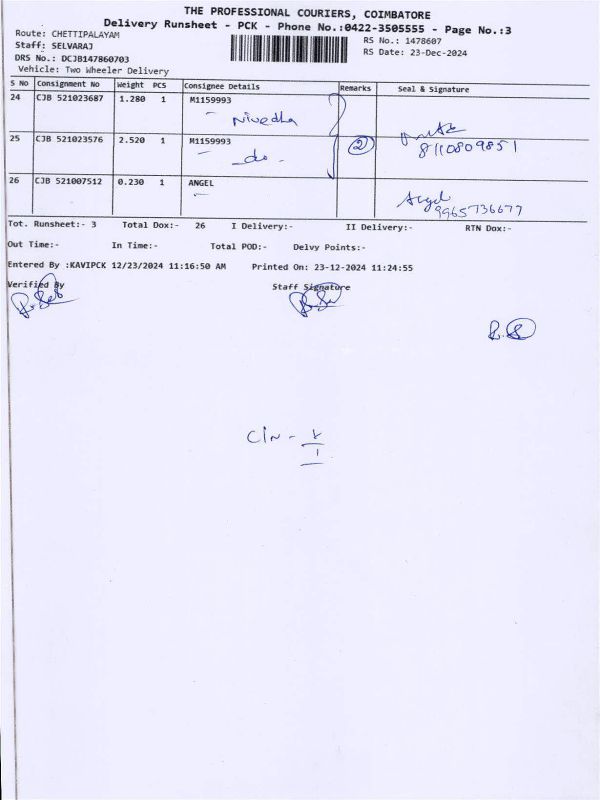 THE PROFESSIONAL COURIERS, COIMBATORE
Delivery Runsheet - PCK - Phone No.:0422-3505555 - Page No.:3
Route: CHETTIPALAYAM
RS No.: 1478607
Staff: SELVARAJ
RS Date: 23-Dec-2024
DRS No.: DCJB147860703
Vehicle: Two Wheeler Delivery
S No Consignment No Weight PCS Consignee Details Remarks Seal & Signature
24 CJB 521023687 1.280 1 M1159993
Nivedha
25 CJB 521023576 2.520 1 M1159993
- do - 2 8110809851
26 CJB 521007512 0.230 1 ANGEL
Angel
9965736677
Tot. Runsheet:- 3 Total Dox:- 26 I Delivery:- II Delivery:- RTN Dox:-
Out Time:- In Time:- Total POD:- Delvy Points:-
Entered By :KAVIPCK 12/23/2024 11:16:50 AM Printed On: 23-12-2024 11:24:55
Verified By Staff Signature